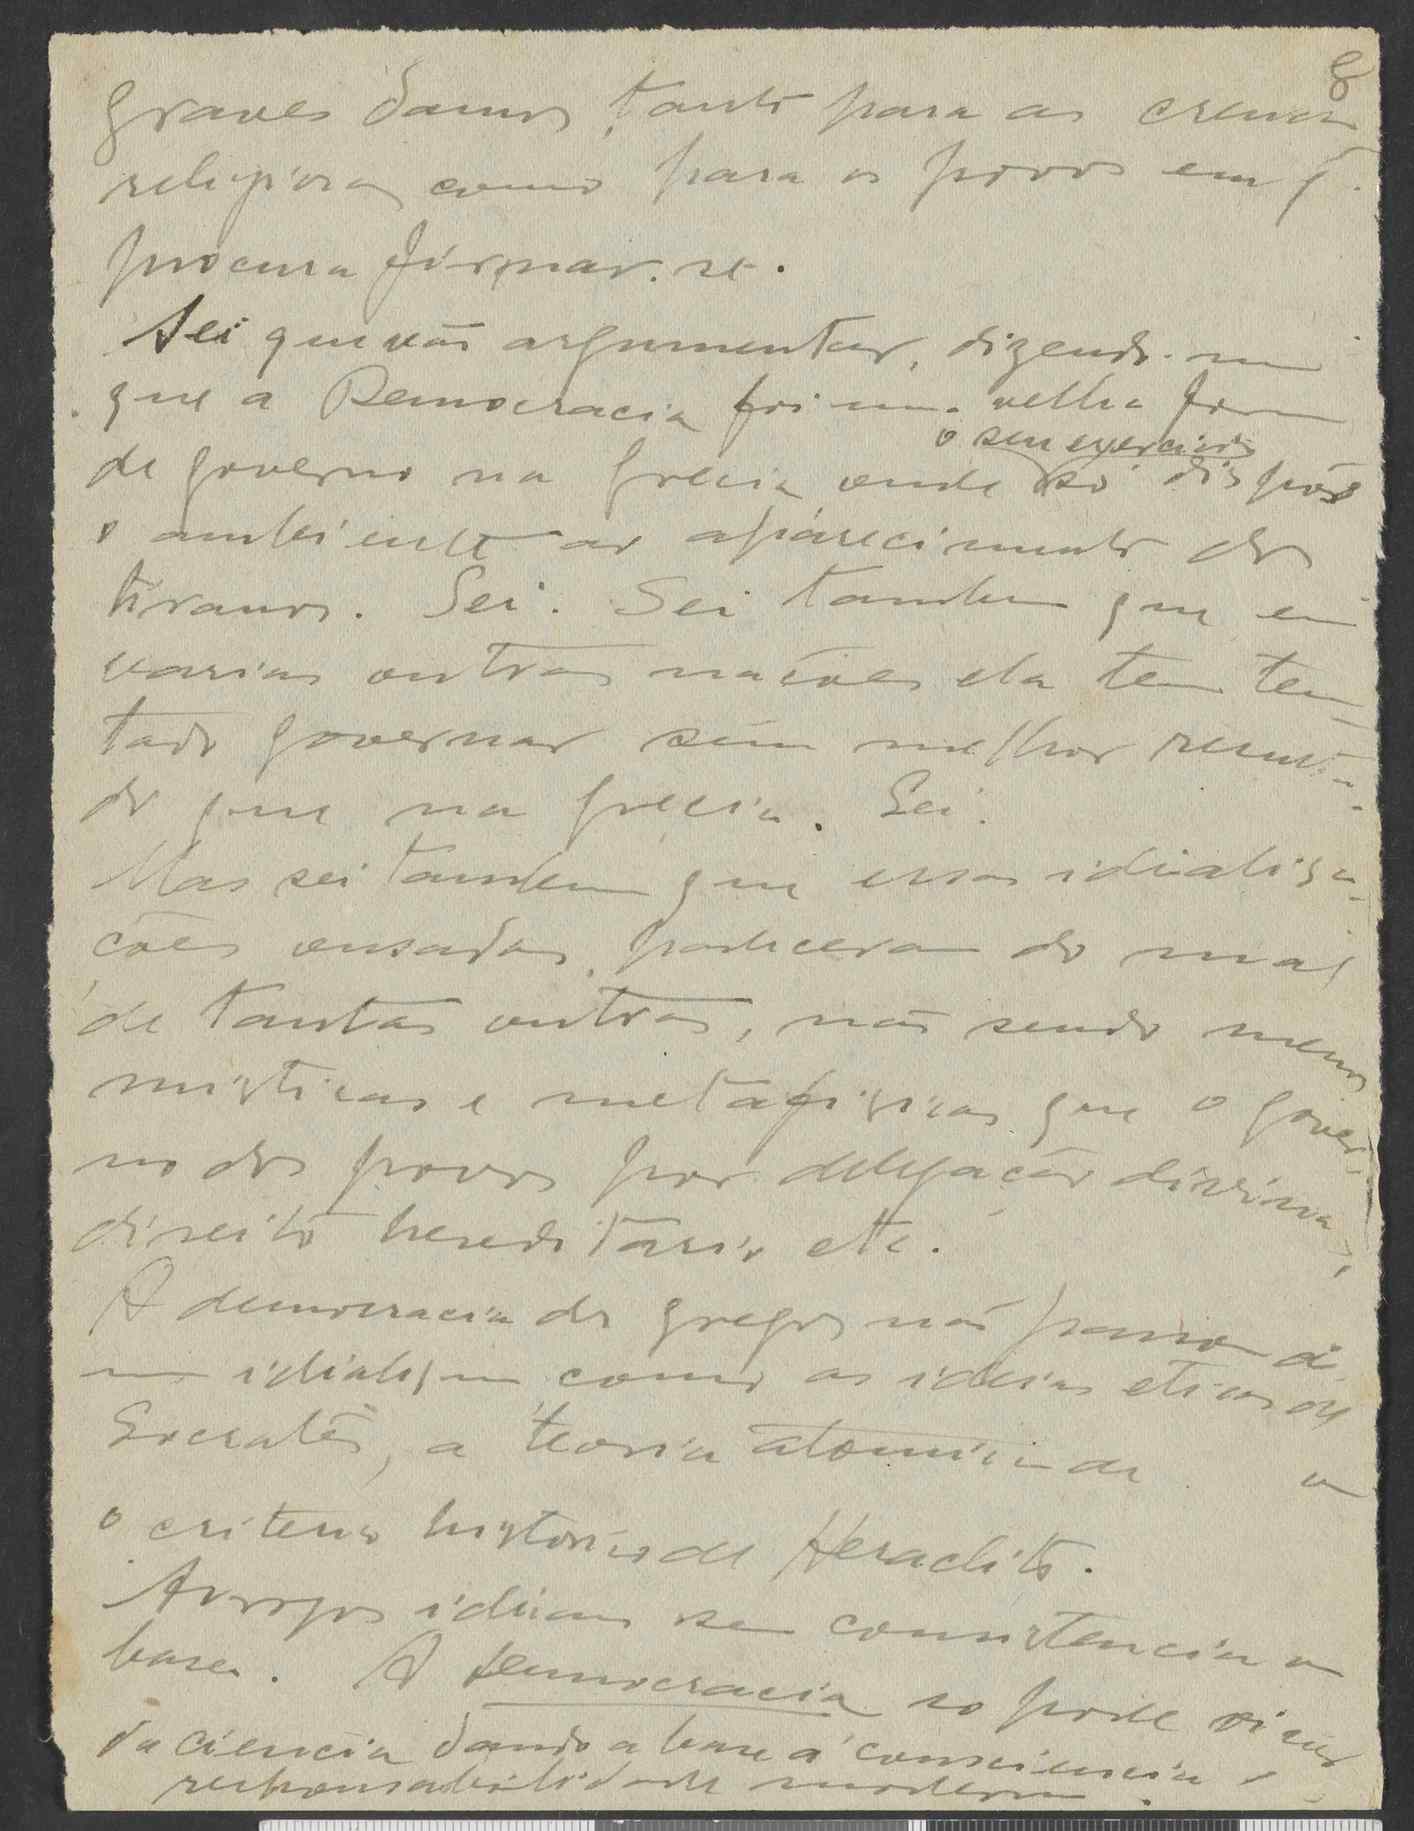 8
graves damnos, tanto para as crenças
religiosas como para os povos em q.
procura firmar-se.
Sei que vás argumentar, dizendo-me
que a Democracia foi uma velha forma
o seu exercicio
de governo na Grecia onde só dispôs
o ambiente ao aparecimento dos
tiranos. Sei. Sei tambem que em
varias outras nações ela tem ten-
tado governar sem melhor resulta-
do que na Grecia. Sei.
Mas sei tambem que essas idealisa-
ções ousadas, padeceram do mal
de tantas outras, não sendo menos
misticas e metafisicas que o gover-
no dos povos por delegação divina,
direito hereditario etc.
A democracia dos gregos não passou de
um idialismo como as ideias eticas de
Socrates, a teoria atomica de ou
o criterio historico de Heraclito.
Arrojos ideiaes sem consistencia ou
base. A Democracia só pode viver
da ciencia dando a base á consciencia e
responsabilidade moderna.